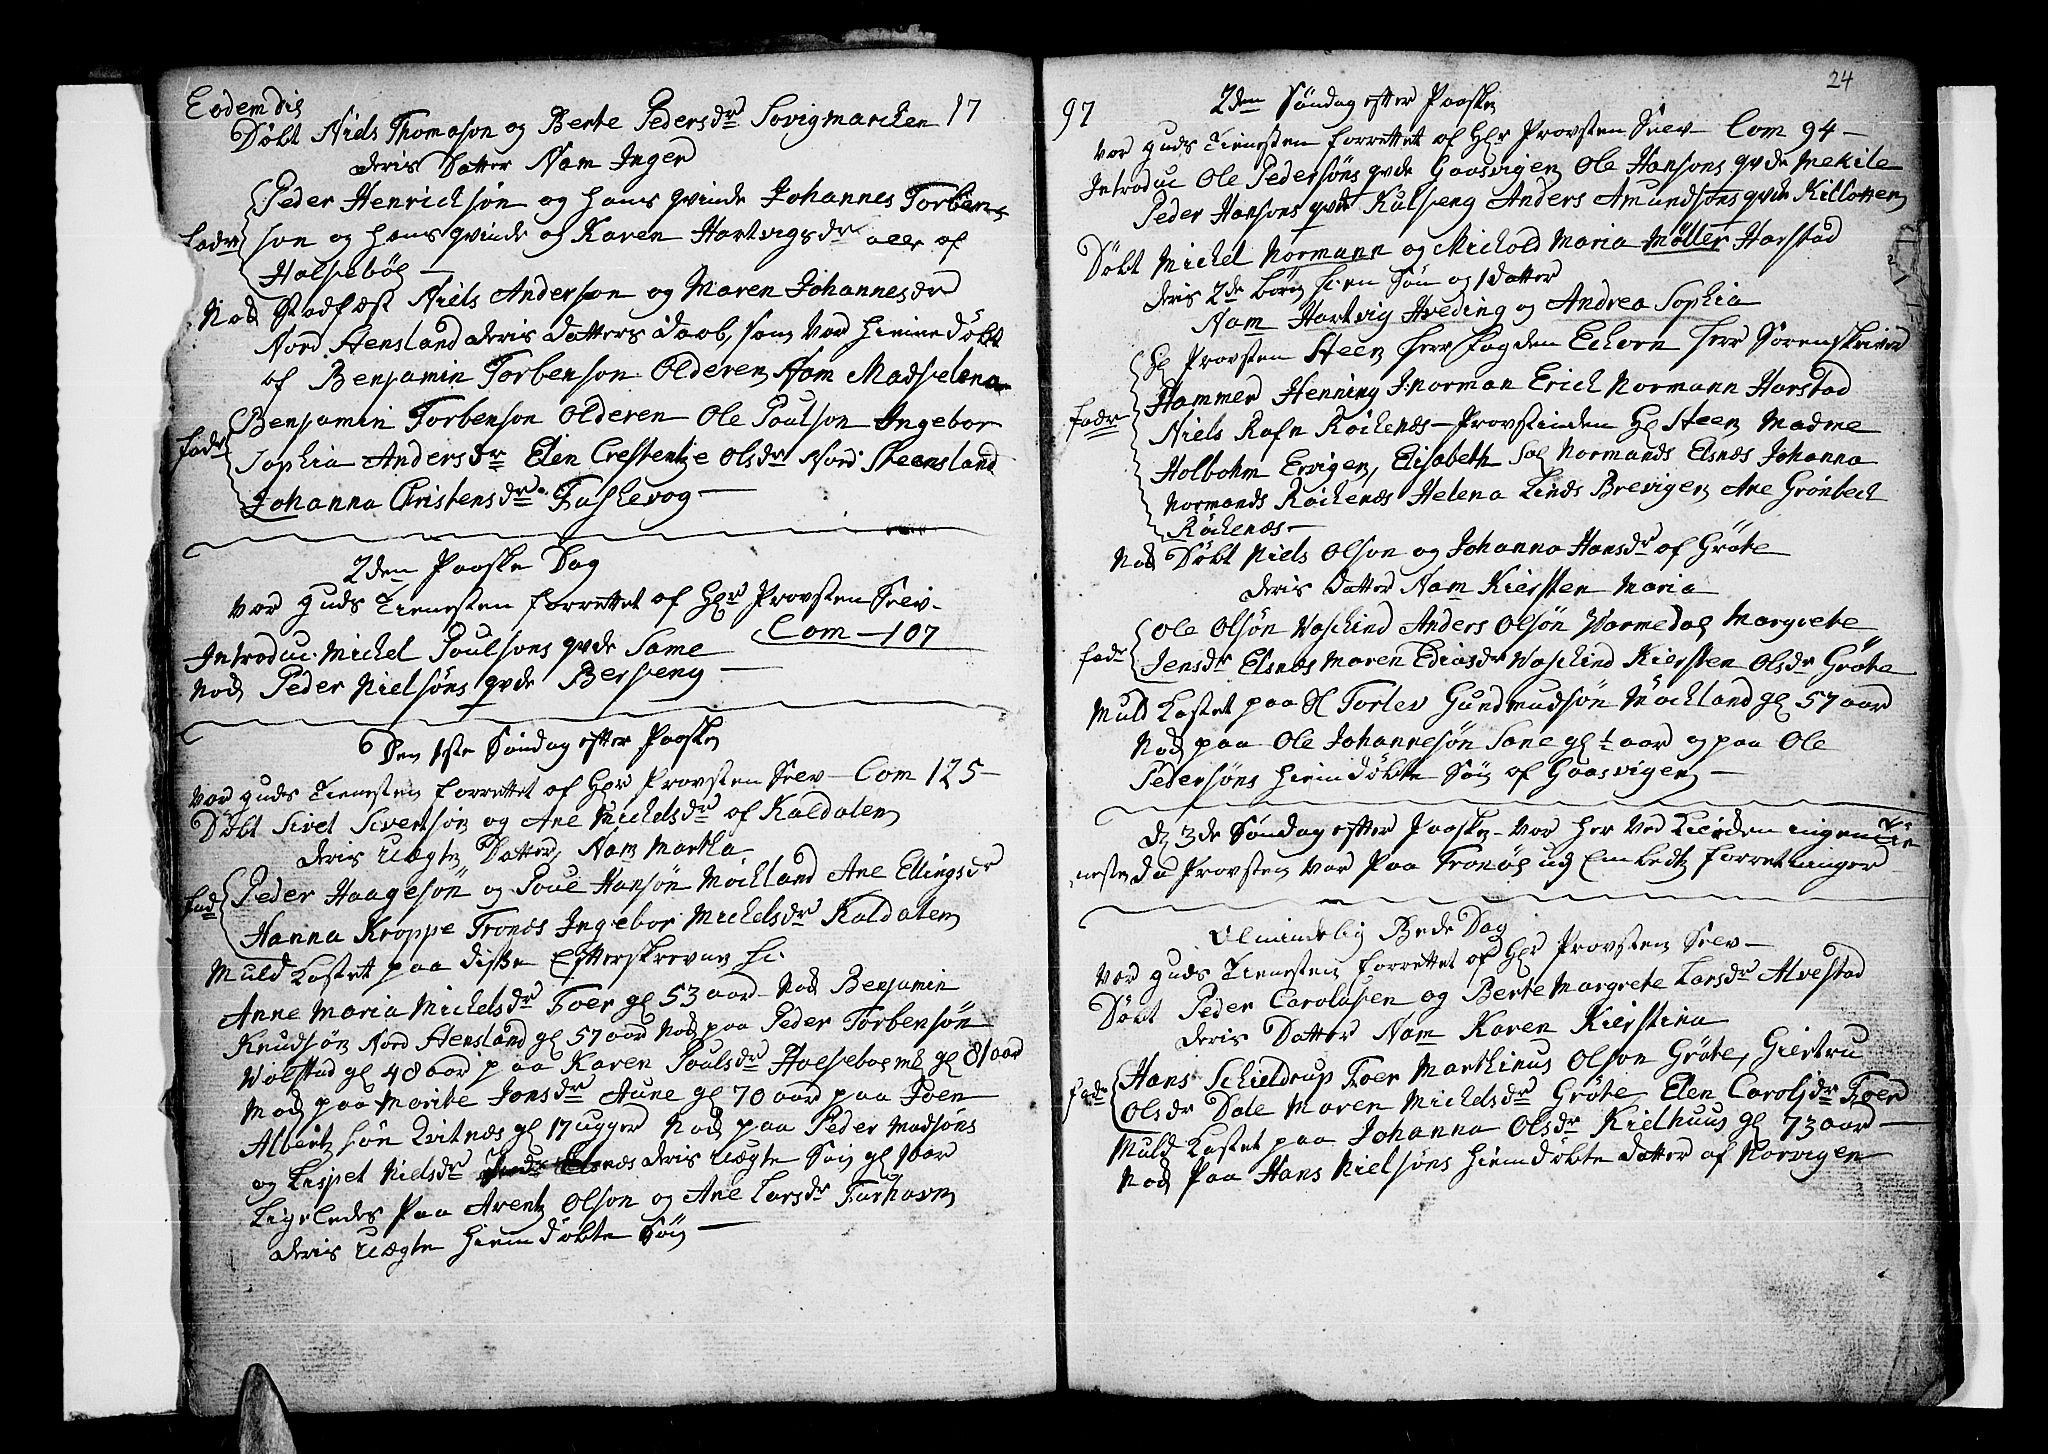 Eodem Die
Døbt Niels Thomason og Berte Pedersdr Sovigmarchen 17
deris Datter Nam Inger
Peder Henrichsøn og hans qvinde Johannes Torben
fadr son og hans qvinde og Karen Hartvigsdr alle af
Halsebøe
Nok Stadfæst Niels Anderson og Maren Johannesdr
Nord Stensland deris datters daab, som var hiemmedøbt
af Benjamin Torbenson Olderen Nam Madselena
Benjamin Torbenson Olderen Ole Poulson Ingebor
fadr Sophia Andersdr Elen Crestentze Olsdr Nord Steensland
Johanna Christensdr Faskevog
2den Paaske Dag
var guds Tienesten forrettet af Hr Provsten Selv
Com 107
Introduc. Michel Poulsons qvde Same
Nok Peder Nielsøns qvde Berseng
Den 1ste Søndag efter Paaske
var guds Tienesten forrettet af Hr Provsten Selv Com 125
Døbt Sivert Sivertsøn og Ane Michelsdr af Kaldalen
deris uægte Datter, Nam Martha
fad Peder Haagesøn og Poul Hansøn Møckland Ane Ellingsdr
Hanna Kroppe Tronæs Ingebor Michelsdr Kaldalen
Muld kastet paa disse Efterskrevne
Anne Maria Michelsdr Foer gl 53 aar Nok Benjamin
Knudsøn Nord Stensland gl 57 aar Nok paa Peder Torbensøn
Wolstad gl 48 aar paa Karen Poulsdr Holseboemk gl 81 aar
Nok paa Marite Jonsdr Aune gl 70 aar paa Joen
Albertsøn Kvitnæs gl 17 ugger Nok paa Peder Madsøns
og Lispet Nielsdr Elsnæs deris uægte Søn gl 1 aar
Ligeledes paa Arent Olson og Ane Larsdr Furhavn
deris uægte hiemdøbte Søn
24
97
2den Søndag efter Paaske
var guds Tienesten forrettet af Hr Provsten Selv Com 94
Introduc Ole Pedersøns qvde Gaasvigen Ole Hansons qvde Mekile
Peder Hansons qvde Kulseng Anders Amundsøns qvde Killotten
Døbt Michel Normann og Michold Maria Møller Harstad
deris 2de børn en Søn og 1 datter
Nam Hartvig Hveding og Andrea Sophia
Hr Provsten Steen Herr fogden Echorn Herr Sorenskriver
Hammer Henning J: norman Erich Normann Harstad
fadr Niels Rafn Røckenæs Provstinden Hl Steen Madme
Holbohm Ervigen, Elisabeth Sal Normands Elsnæs Johanna
Normands Røckenæs Helena Linds Brevigen Ane Grønbech
Røckenæs
Nok Døbt Niels Olson og Johanna Hansdr af Grøte
deris datter Nam Kiersten Maria
Ole Olsøn Vaskind Anders Olsøn Varmedal Margrete
fadr Jensdr Elsnæs Maren Ediasdr Vaskind Kiersten Olsdr Grøte
Muld kastet paa Torlev Gundmudsøn Møckland gl 57 aar
Nok paa Ole Johannesøn Sane gl ½ aar og paa Ole
Pedersøns hiemdøbte Søn af Gaasvigen
D 3de Søndag efter Paaske var her ved Kirken ingen Tie
nesten da Provsten var paa Tronøe ud Embedtz forretninger
Almindelig Bede Dag
var guds Tienesten forrettet af Hr Provsten Selv
Døbt Peder Carolusen og Berte Margrete Larsdr Alvestad
deris Datter Nam Karen Kierstina
Hans Schieldrup Foer Marthinus Olson Grøte, Giertru
fadr Olsdr Dale Maren Michelsdr Grøte, Elen Carolidr Foer
Muld kastet paa Johanna Olsdr Kielhuus gl 73 aar
Nok paa Hans Nielsøns hiemdøbte datter af Norvigen